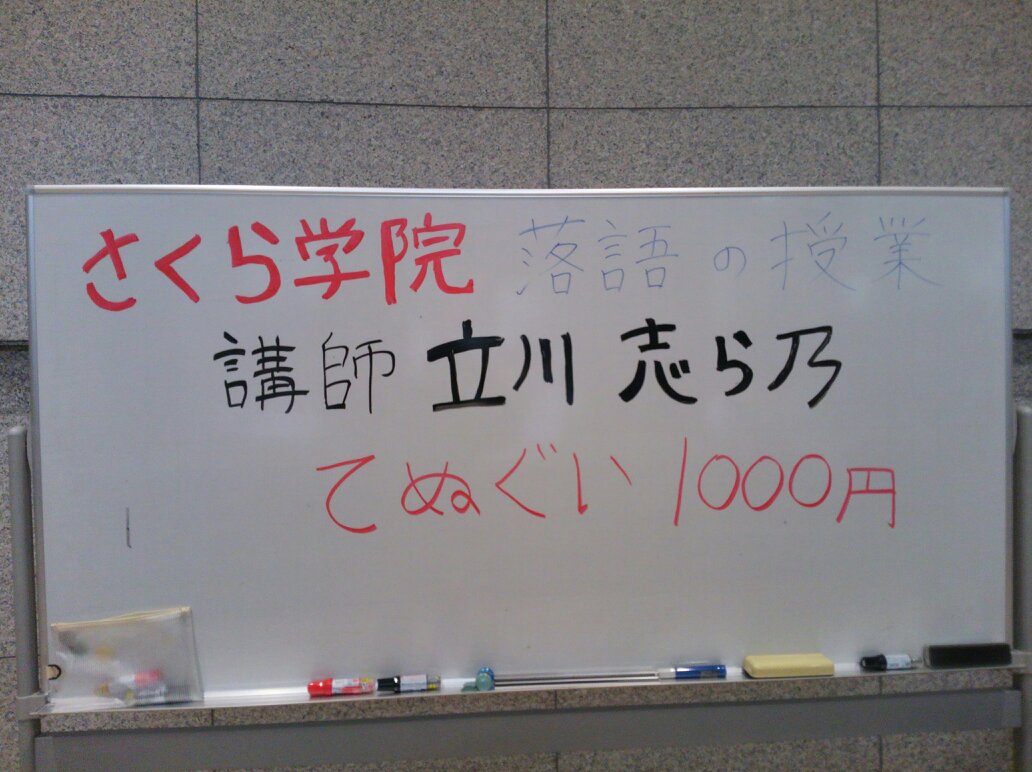 さくら学院 落語の授業
講師 立川 志ら乃
てぬぐい 1000円